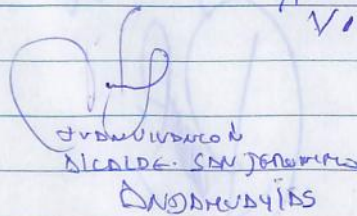 VI
JUAN VIVANCO N
ALCALDE. SAN JERONIMO
ANDAHUAYLAS